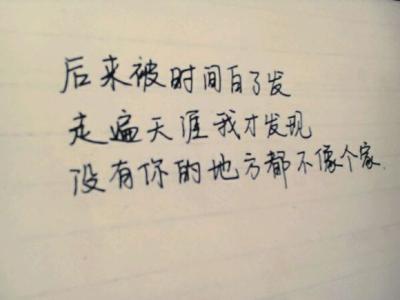 后来被时间白了发
走遍天涯我才发现
没有你的地方都不像个家.